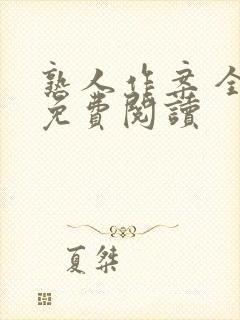 熟人作案全
免費閱讀
夏桀